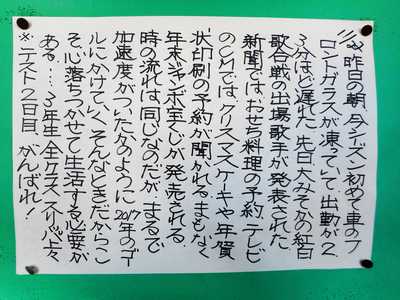 11/22 昨日の朝、今シーズン初めて車のフ
ロントガラスが凍っていて出勤が2
3分ほど遅れた。先日、大みそかの紅白
歌合戦の出場歌手が発表された。
新聞ではおせち料理の予約、テレビ
のCMではクリスマスケーキや年賀
状印刷の予約が聞かれる。まもなく
年末ジャンボ宝くじが発売される。
時の流れは同じなのだが、まるで
加速度がついたかのように2017年のゴー
ルにかけていく。そんなときだからこ
そ、心落ちつかせて生活する必要が
ある…。3年生全クラス、スリッパ上々
※テスト2日目、がんばれ!